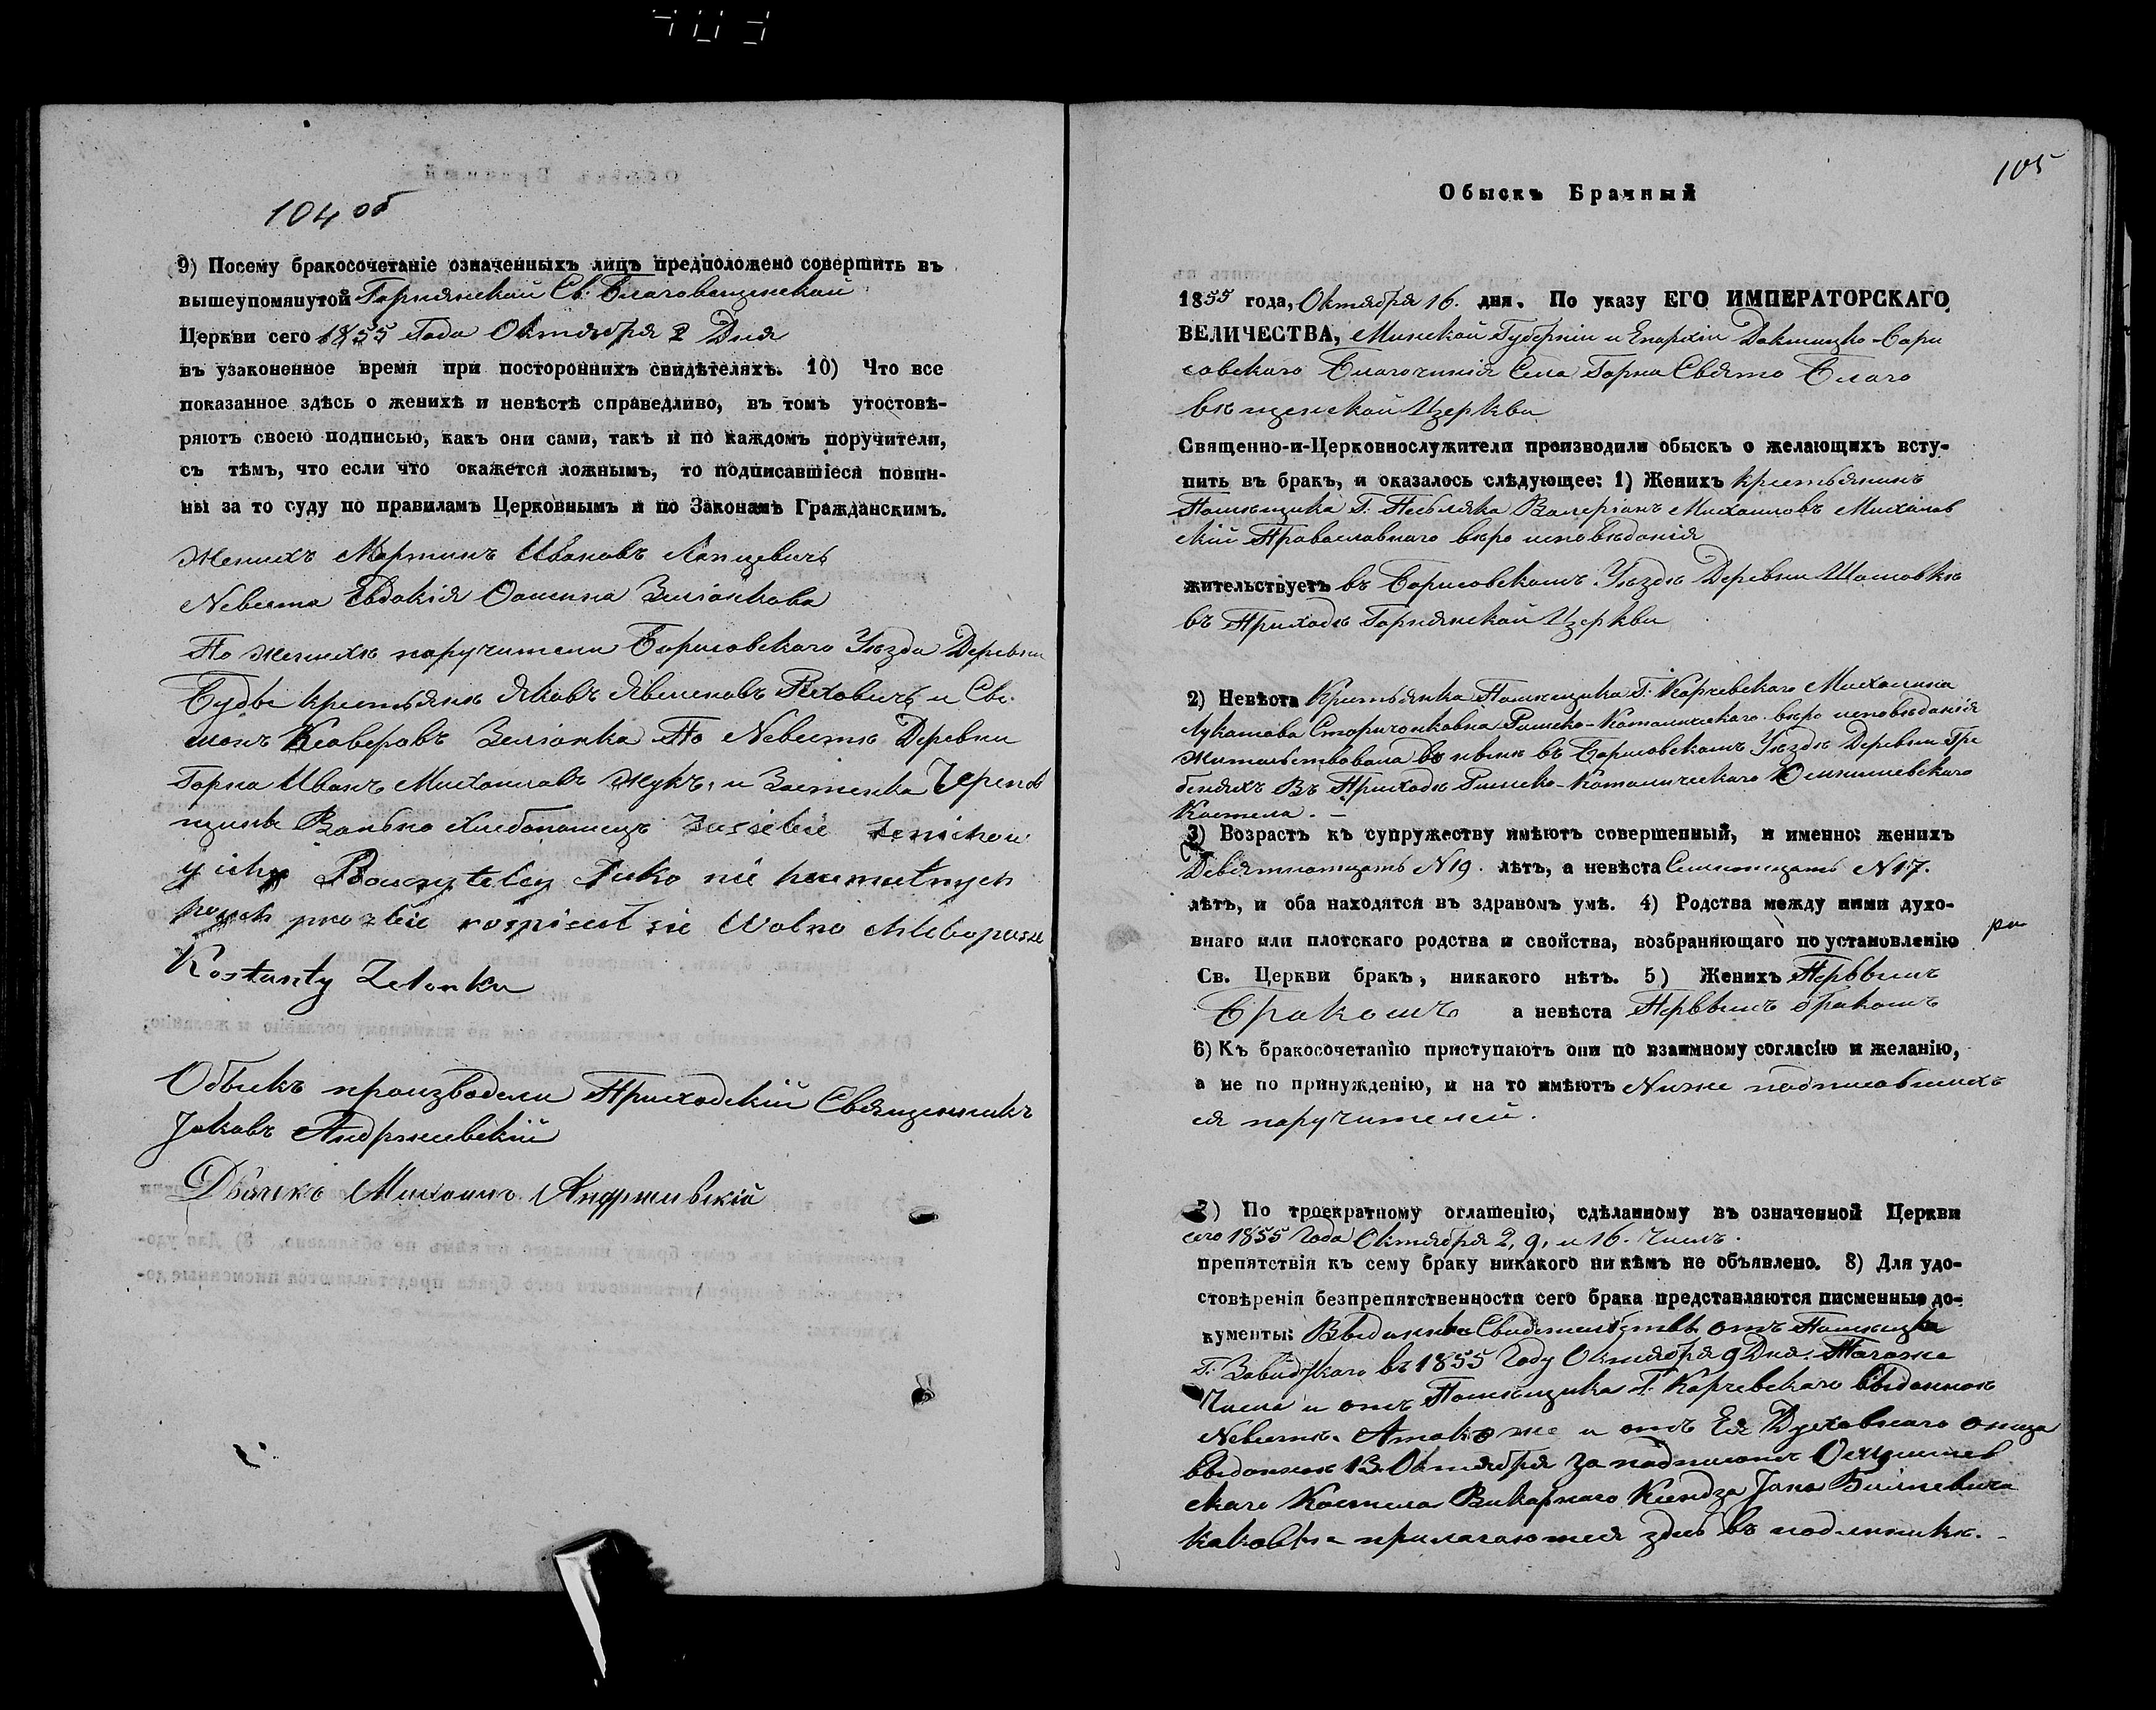 104 об
9) Посему бракосочетаніе означенныхъ лицъ предположено совершить въ
вышеупомянутой Горнянской Св. Благовещенской
Церкви сего 1855 Года Октября 2 Дня
въ узаконенное время при постороннихъ свидѣтеляхъ. 10) Что все
показанное здѣсь о женихѣ и невѣстѣ справедливо, въ томъ утостовѣ-
ряютъ своею подписью, какъ они сами, такъ и по каждомъ поручители,
съ тѣмъ, что если что окажется ложнымъ, то подписавшіеся повин-
ны за то суду по правиламъ Церковнымъ и по Законамъ Гражданскимъ.
Женихъ Мартинъ Ивановъ
Nевеста Евдокія
По женихѣ поручители Борисовскаго Уѣзда Деревни
Будвы крестьяне Яковъ и Све
По Nевестѣ Деревни
Горна Иванъ Михаиловъ Жукъ, и Застенка
Ванько za siebie
y ich Jako nie
prozbie Wolno
Kostanty Zelonka
Обыскъ производели Приходскій Священникъ
Jаковъ Андржиевскій
Дьячекъ Михаилъ Андржиевскій
105
Обыскъ Брачный
1855 года, Октября 16. дня. По указу ЕГО ИМПЕРАТОРСКАГО
ВЕЛИЧЕСТВА, Минской Губерніи и Епархіи Докшицко-Бори
совскаго Благочинія Села Горна Свято Благо
вѣщенской Церкви
Священно-и-Церковнослужители производили обыскъ о желающихъ всту-
пить въ бракъ, и оказалось слѣдующее: 1) Женихъ крестьянинъ
Помѣщика Г. Валеріянъ Михаиловъ Михалов
скій Православнаго вѣро исповѣданія
жительствуетъ въ Борисовскомъ Уѣздѣ Деревни Шамовкѣ
въ Приходѣ Горнянской Церкви
2) Невѣста Крестьянка Помѣщика Г. Корчевскаго Михалина
Лукашова Римско-Католическаго вѣро исповѣданія
Жительствовала въ Борисовскомъ Уѣздѣ Деревни Гре
беняхъ Въ Приходѣ Римско-Католическаго
Костела. –
3) Возрастъ къ супружеству имѣютъ совершенный, и именно: женихъ
Девятнатцать N19. лѣтъ, а невѣста Семнатцать N17.
лѣтъ, и оба находятся въ здравомъ умѣ. 4) Родства между ними духо-
внаго или плотскаго родства и свойства, возбраняющаго по установленію
Св. Церкви бракъ, никакого нѣтъ. 5) Женихъ Первымъ
Бракомъ а невѣста Первымъ бракомъ
6) Къ бракосочетанію приступаютъ они по взаимному согласію и желанію,
а не по принужденію, и на то имѣютъ Ниже подписавших
ся поручителей.
7) По троекратному оглашенію, сдѣланному въ означенной Церкви
сего 1855 Года Октября 2, 9, и 16. Числъ.
препятствія къ сему браку никакого ни кѣмъ не объявлено. 8) Для удо-
стовѣренія безпрепятственности сего брака представляются писменные до-
кументы: Выданные от Помѣщика
Г. въ 1855 Году Октября 9 Дня. Тогоже
Числа и отъ Помѣщика Г. Корчевскаго выданное
Nевестѣ. А также и отъ Ея Духовнаго отца
выданное 13. Октября за подписомъ
скаго Костела Викарнаго Ксендза Jана
каковые прилагаются здѣс въ подлинникѣ. –